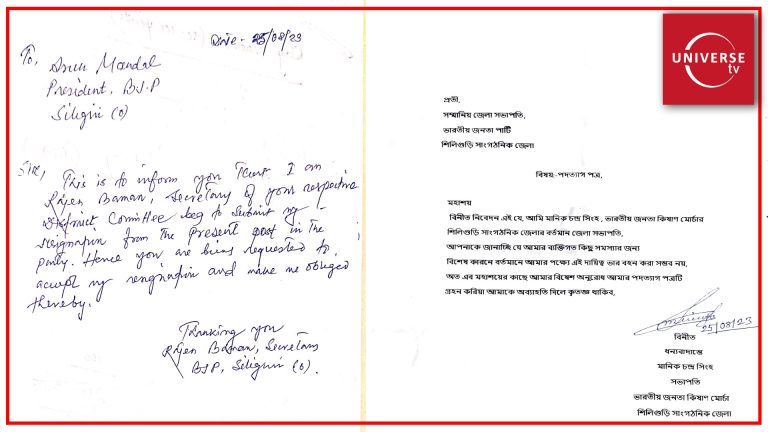 Date - 25/08/23
To,
Arun Mandal
President, B.J.P
Siliguri (O)
Sir,
This is to inform you that I am
Rajen Baman, Secretary of your respective
District Comittee beg to submit my
resignation from the present post in the
party. Hence you are being requested to
accept my resignation and make me obliged
thereby.
Thanking you
Rajen Baman, Secretary
BJP, Siliguri (O).
UNIVERSE
tv
প্রতী,
সম্মানিয় জেলা সভাপতি,
ভারতীয় জনতা পার্টি
শিলিগুড়ি সাংগঠনিক জেলা
বিষয়:-পদত্যাগ পত্র,
মহাশয়
বিনীত নিবেদন এই যে, আমি মানিক চন্দ্র সিংহ , ভারতীয় জনতা কিষাণ মোর্চার
শিলিগুড়ি সাংগঠনিক জেলার বর্তমান জেলা সভাপতি,
আপনাকে জানাচ্ছি যে আমার ব্যক্তিগত কিছু সমস্যার জন্য
বিশেষ কারনে বর্তমানে আমার পক্ষ্যে এই দায়িত্ব ভার বহন করা সম্ভব নয়,
অত এব মহাশয়ের কাছে আমার বিষেশ অনুরোধ আমার পদত্যাগ পত্রটি
গ্রহন করিয়া আমাকে অব্যাহতি দিলে কৃতজ্ঞ থাকিব,
25/08/23
বিনীত
ধন্যবাদান্তে
মানিক চন্দ্র সিংহ
সভাপতি
ভারতীয় জনতা কিষাণ মোর্চা
শিলিগুড়ি সাংগঠনিক জেলা